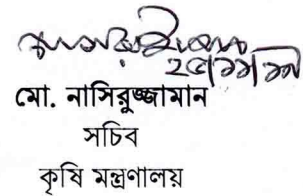 মো. নাসিরুজ্জামান
সচিব
কৃষি মন্ত্রণালয়